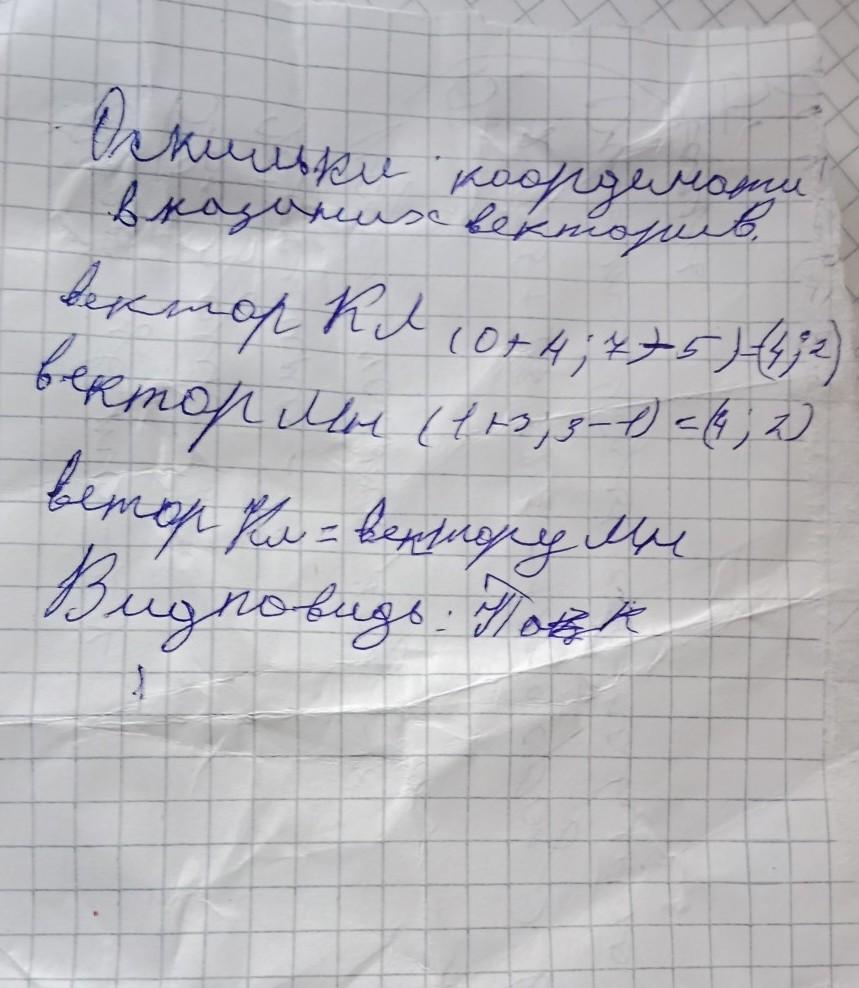 Оскильки координати
вказаних векторив.
вектор Кл (0+4; 7-5)=(4;2)
вектор Мн (1+3; 3-1)=(4; 2)
ветор Кл = вектору Мн
Видповидь: